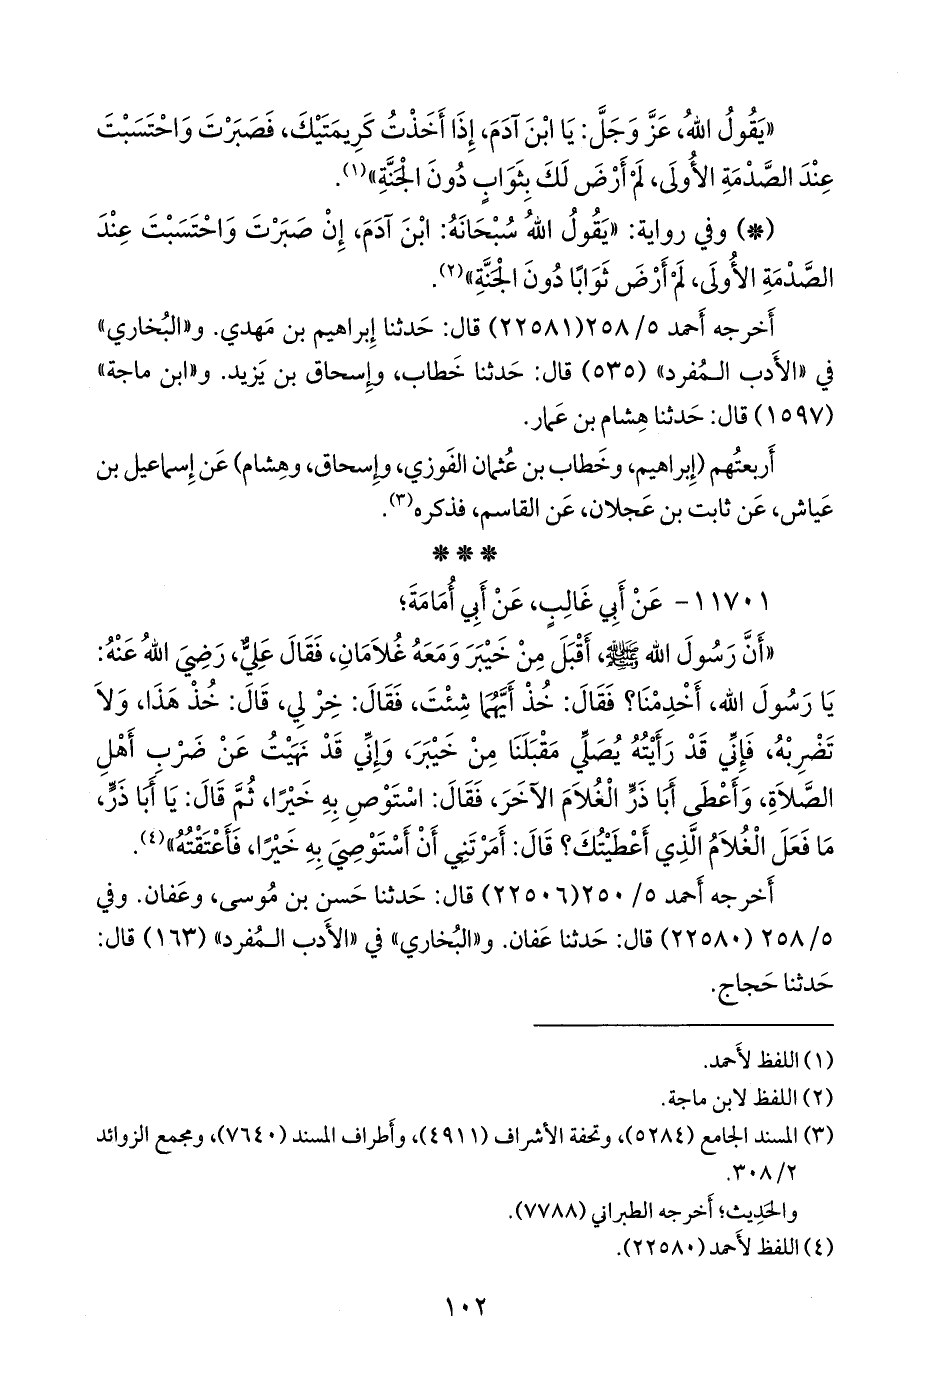 «يَقُولُ اللهُ، عَزَّ وَجَلَّ: يَا ابْنَ آدَمَ، إِذَا أَخَذْتُ كَرِيمَتَيْكَ، فَصَبَرْتَ وَاحْتَسَبْتَ
عِنْدَ الصَّدْمَةِ الأُولَى، لَمْ أَرْضَ لَكَ بِثَوَابٍ دُونَ الْجَنَّةِ»(١).
(*) وفي رواية: «يَقُولُ اللهُ سُبْحَانَهُ: ابْنَ آدَمَ، إِنْ صَبَرْتَ وَاحْتَسَبْتَ عِنْدَ
الصَّدْمَةِ الأُولَى، لَمْ أَرْضَ ثَوَابًا دُونَ الْجَنَّةِ»(٢).
أَخرجه أَحمد ٥/ ٢٥٨(٢٢٥٨١) قال: حَدثنا إِبراهيم بن مَهدي. و«البُخاري»
في «الأَدب الـمُفرد» (٥٣٥) قال: حَدثنا خَطاب، وإِسحاق بن يَزيد. و«ابن ماجة»
(١٥٩٧) قال: حَدثنا هِشام بن عَمار.
أَربعتُهم (إِبراهيم، وخَطاب بن عُثمان الفَوزي، وإِسحاق، وهِشام) عَن إِسماعيل بن
عَياش، عَن ثابت بن عَجلان، عَن القاسم، فذكره(٣).
* * *
١١٧٠١- عَنْ أَبِي غَالِبٍ، عَنْ أَبِي أُمَامَةَ؛
«أَنَّ رَسُولَ الله ﷺ، أَقْبَلَ مِنْ خَيْبَرَ وَمَعَهُ غُلَامَانِ، فَقَالَ عَلِيٌّ، رَضِيَ اللهُ عَنْهُ:
يَا رَسُولَ الله، أَخْدِمْنَا؟ فَقَالَ: خُذْ أَيَّهُمَا شِئْتَ، فَقَالَ: خِرْ لِي، قَالَ: خُذْ هَذَا، وَلاَ
تَضْرِبْهُ، فَإِنِّي قَدْ رَأَيْتُهُ يُصَلِّي مَقْبَلَنَا مِنْ خَيْبَرَ، وَإِنِّي قَدْ نَهَيْتُ عَنْ ضَرْبِ أَهْلِ
الصَّلاَةِ، وَأَعْطَى أَبَا ذَرٍّ الْغُلاَمَ الآخَرَ، فَقَالَ: اسْتَوْصِ بِهِ خَيْرًا، ثُمَّ قَالَ: يَا أَبَا ذَرٍّ،
مَا فَعَلَ الْغُلاَمُ الَّذِي أَعْطَيْتُكَ؟ قَالَ: أَمَرْتَنِي أَنْ أَسْتَوْصِيَ بِهِ خَيْرًا، فَأَعْتَقْتُهُ»(٤).
أَخرجه أَحمد ٥/ ٢٥٠(٢٢٥٠٦) قال: حَدثنا حَسن بن مُوسى، وعَفان. وفي
٥/ ٢٥٨ (٢٢٥٨٠) قال: حَدثنا عَفان. و«البُخاري» في «الأَدب الـمُفرد» (١٦٣) قال:
حَدثنا حَجاج.
(١) اللفظ لأَحمد.
(٢) اللفظ لابن ماجة.
(٣) المسند الجامع (٥٢٨٤)، وتحفة الأشراف (٤٩١١)، وأَطراف المسند (٧٦٤٠)، ومجمع الزوائد
٢/ ٣٠٨.
والحَدِيث؛ أَخرجه الطبراني (٧٧٨٨).
(٤) اللفظ لأَحمد (٢٢٥٨٠).
١٠٢